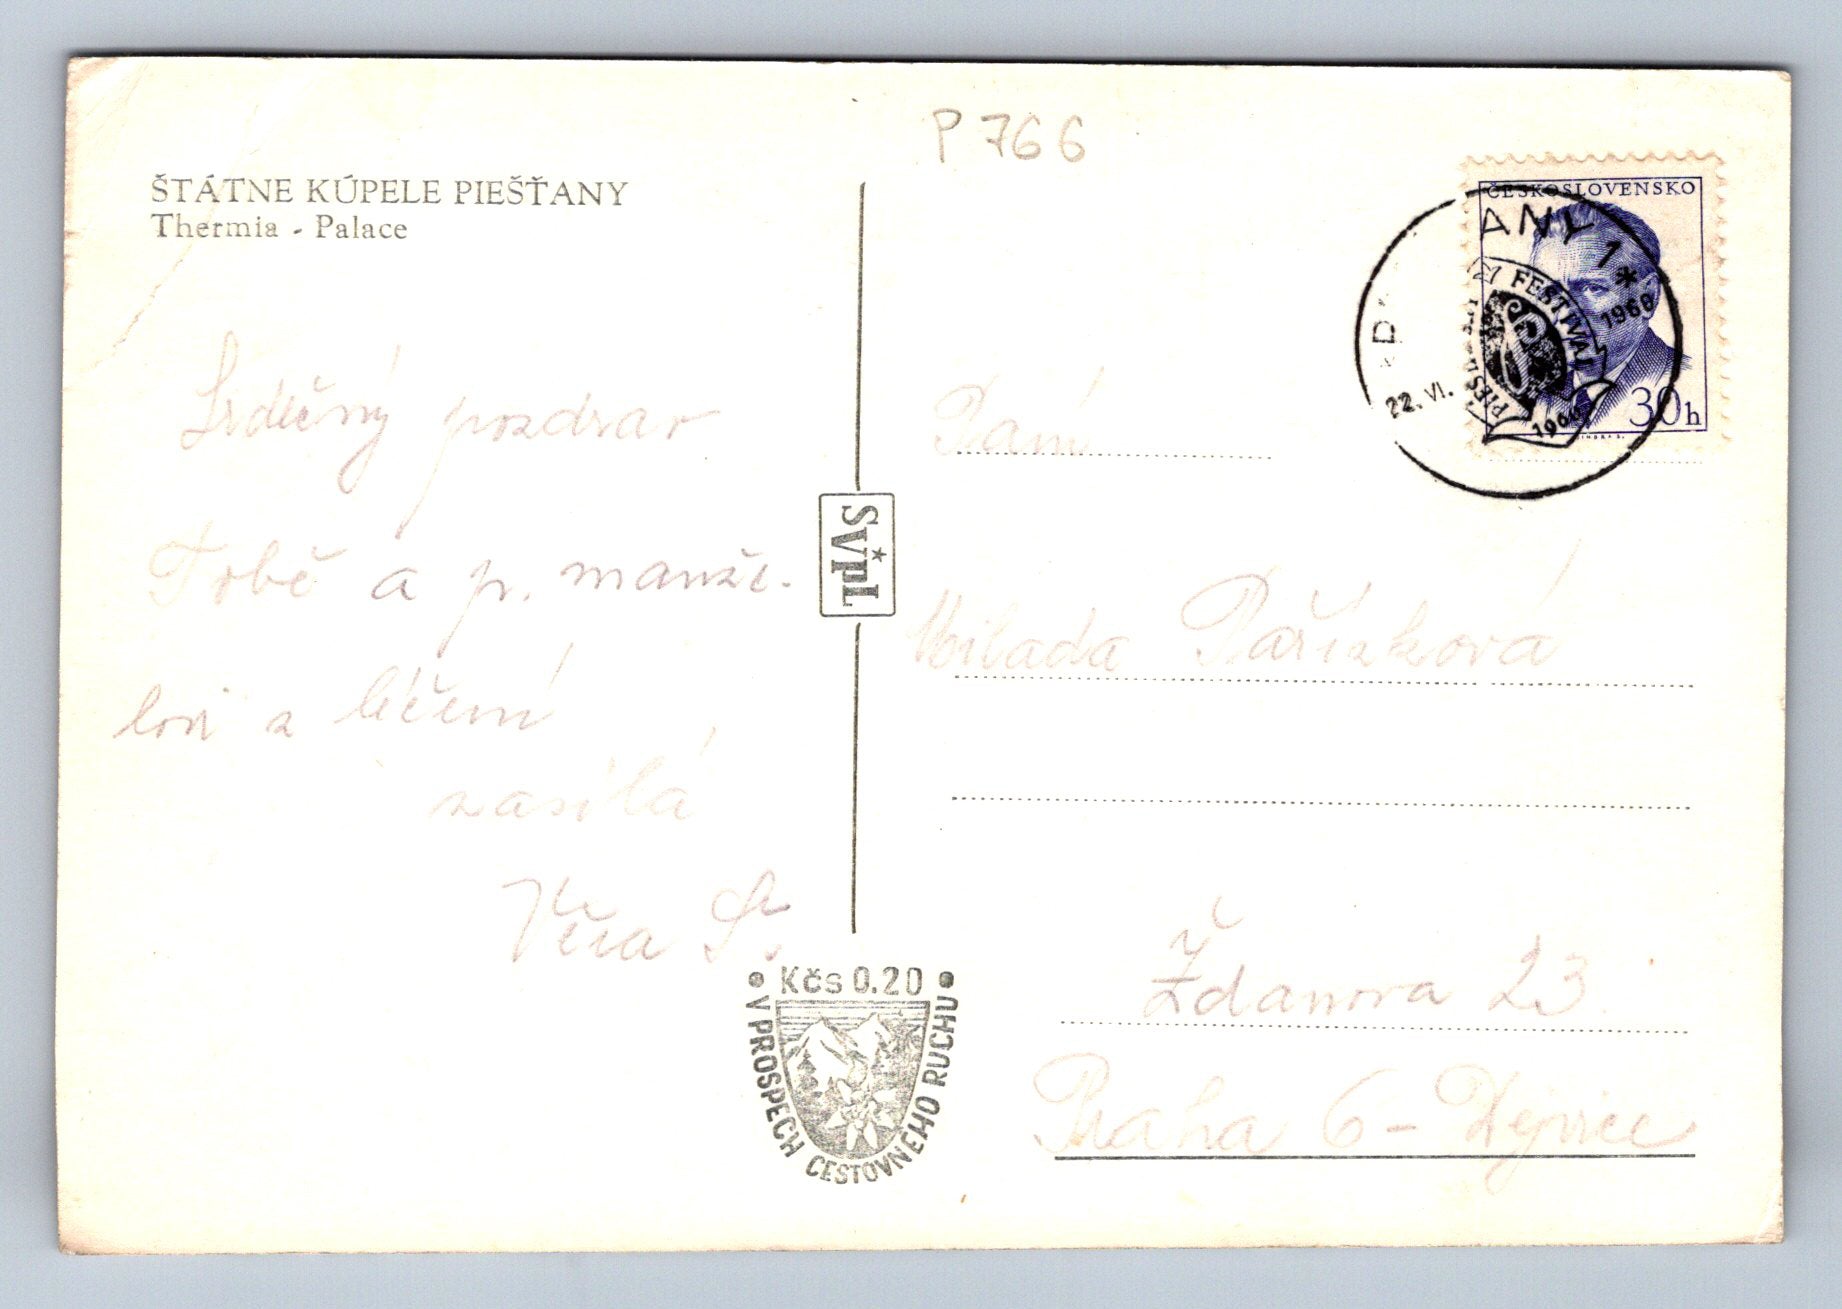 P 766
ŠTÁTNE KÚPELE PIEŠŤANY
Thermia - Palace
Srdečný pozdrav
Tobě a p. manže-
lovi z léčení
zasílá
Věra S.
SVPL
Kčs 0.20
V PROSPECH CESTOVNÉHO RUCHU
ČESKOSLOVENSKO
30h
ANY 1 *
FESTIVAL
1960
22. VI.
1960
Paní
Milada Pařízková
Ždanova 23
Praha 6 - Dejvice